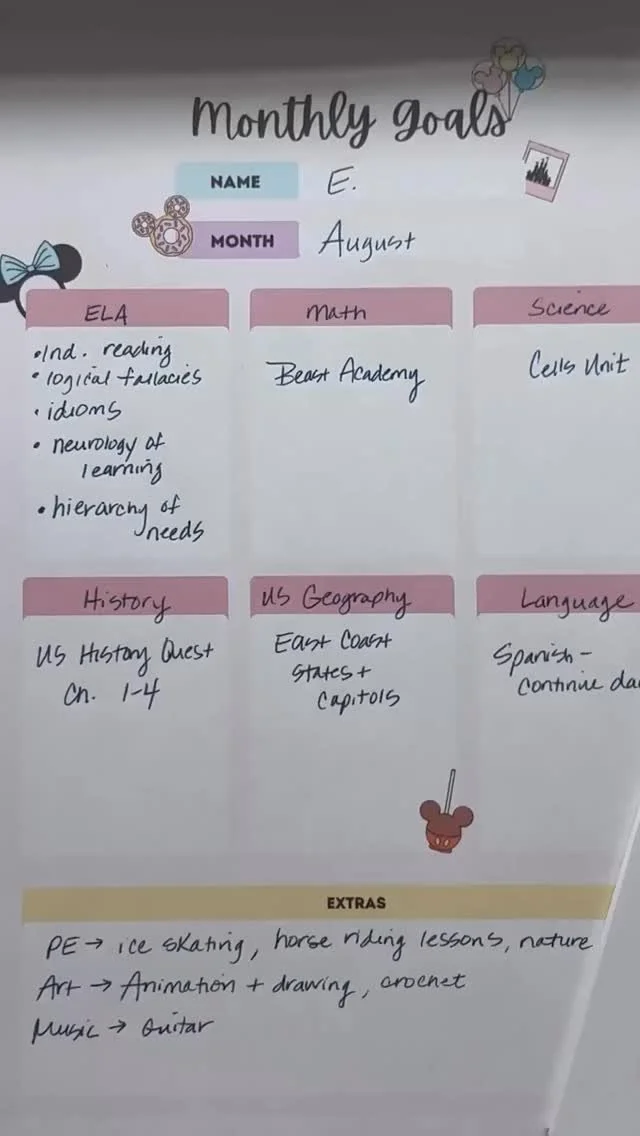 Monthly goals
NAME E.
MONTH August
ELA
• Ind. reading
• logical fallacies
• idioms
• neurology of
learning
• hierarchy of
needs
Math
Beast Academy
Science
Cells Unit
History
US History Quest
Ch. 1-4
US Geography
East Coast
States +
Capitols
Language
Spanish -
continue
EXTRAS
PE → ice skating, horse riding lessons, nature
Art → Animation + drawing, crochet
Music → Guitar